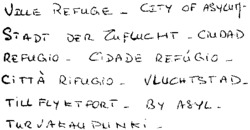 VILLE REFUGE - CITY OF ASYLUM-
STADT DER ZUFLUCHT - CIUDAD
REFUGIO - CIDADE REFÚGIO -
CITTÀ RIFUGIO - VLUCHTSTAD-
TILLFLYKTFORT - BY ASYL-
TURVAKAUPUNKI -